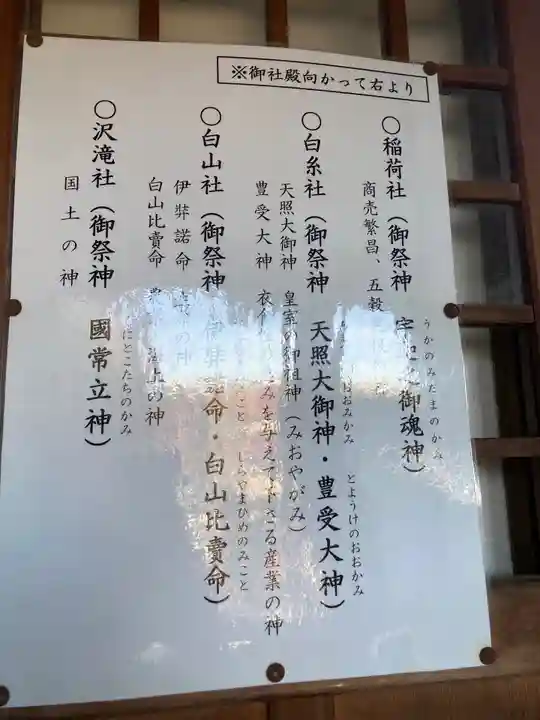 ※御社殿向かって右より
○稲荷社（御祭神 御魂神）
うかのみたまのかみ
商売繁昌、五穀
○白糸社（御祭神 天照大御神・豊受大神）
おおみかみ とようけのおおかみ
天照大御神 皇室の御祖神（みおやがみ）
豊受大神 衣 を与えて下さる産業の神
○白山社（御祭神 伊弉諾命・白山比賣命）
みこと しらやまひめのみこと
伊弉諾命 の神
白山比賣命 の神
○沢滝社（御祭神 國常立神）
にとこたちのかみ
国土の神